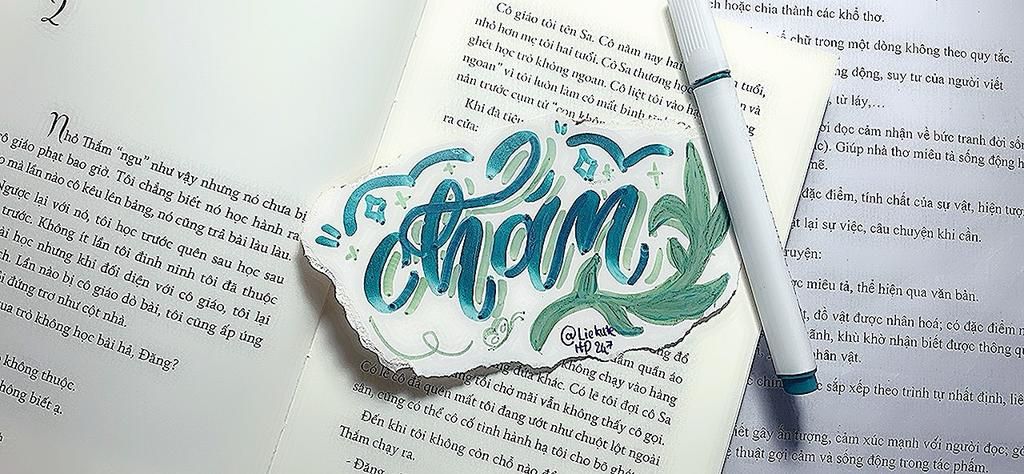 2
Nhỏ Thắm “ngu” như vậy nhưng nó chưa bị
cô giáo phạt bao giờ. Tôi chẳng biết nó học hành ra
mà lần nào cô kêu lên bảng, nó cũng trả bài làu làu.
Ngược lại với nó, tôi học trước quên sau học sau
trước. Không ít lần tôi đinh ninh tôi đã thuộc
bài học nhưng khi đối diện với cô giáo, tôi lại
ch. Lần nào bị cô giáo dò bài, tôi cũng ấp úng
đứng trơ như cột nhà.
trò không học bài hả, Đăng?
không thuộc.
không biết ạ.
Cô giáo tôi tên Sa. Cô năm nay hai tuổi,
nhỏ hơn mẹ tôi hai tuổi. Cô Sa thương học
ghét học trò không ngoan. Cô liệt tôi vào và
ngoan” vì tôi luôn làm cô mất bình
nản trước cụm từ “con không
Khi đã
ra cửa:
chăm
@Liekute
HP 247
đồ
thấm quần áo
không chạy vào hàng
đứa khác. Có lẽ tôi đợi cô Sa
Có lẽ cô đã quên mất tôi đang ướt như chuột lột ngoài
sân, cũng có thể cô cố tình hành hạ tôi cho bõ
Đến khi tôi không còn chỗ nào để
Thắm chạy ra.
- Đăng
ch hoặc chia thành các khổ thơ.
chữ trong một dòng không theo quy tắc.
động, suy tư của người viết
từ láy,…
đọc cảm nhận về bức tranh đời sống
Giúp nhà thơ miêu tả sống động
mẽ.
đặc điểm, tính chất của sự vật, hiện tượng
lại sự việc, câu chuyện khi cần.
truyện:
miêu tả, thể hiện qua văn bản.
đồ vật được nhân hoá; có đặc điểm
cảnh, khù khờ nhận biết được thông qua
nhân vật.
sắp xếp theo trình tự nhất định,
gây ấn tượng, cảm xúc mạnh với người đọc;
thuật gợi cảm và sống động trong tác phẩm.